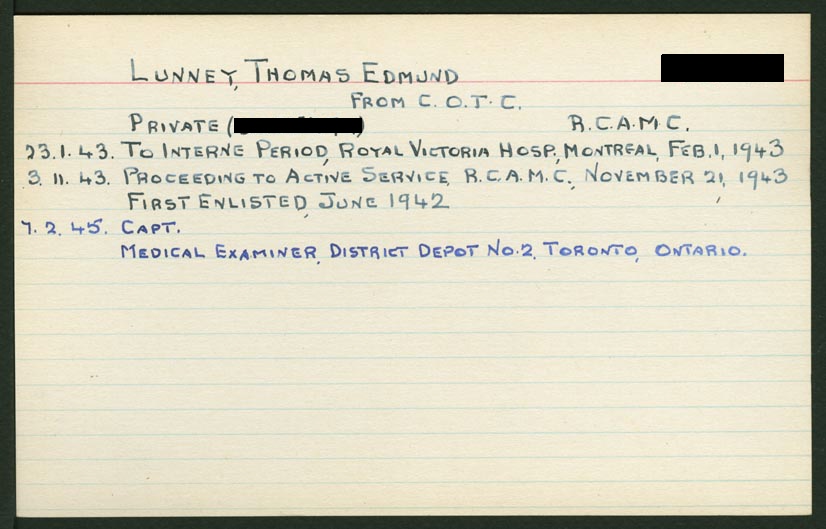 LUNNEY, THOMAS EDMUND
FROM C.O.T.C.
PRIVATE ( ) R.C.A.M.C.
23.1.43. TO INTERNE PERIOD, ROYAL VICTORIA HOSP., MONTREAL, FEB. 1, 1943
3.11.43. PROCEEDING TO ACTIVE SERVICE, R.C.A.M.C., NOVEMBER 21, 1943
FIRST ENLISTED, JUNE 1942
7.2.45. CAPT.
MEDICAL EXAMINER, DISTRICT DEPOT NO.2, TORONTO, ONTARIO.